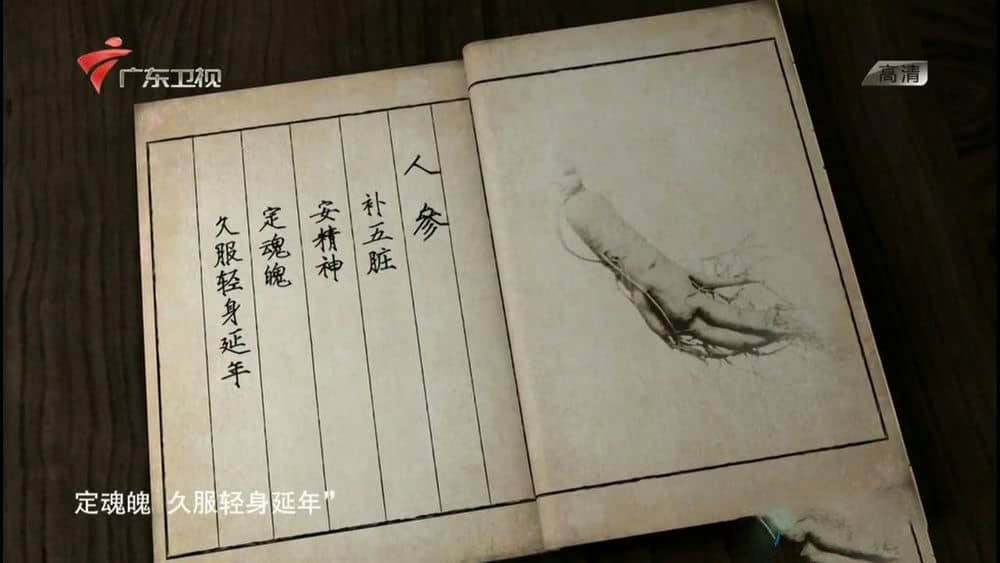 广东卫视
高清
人参
补五脏
安精神
定魂魄
久服轻身延年
定魂魄 久服轻身延年”